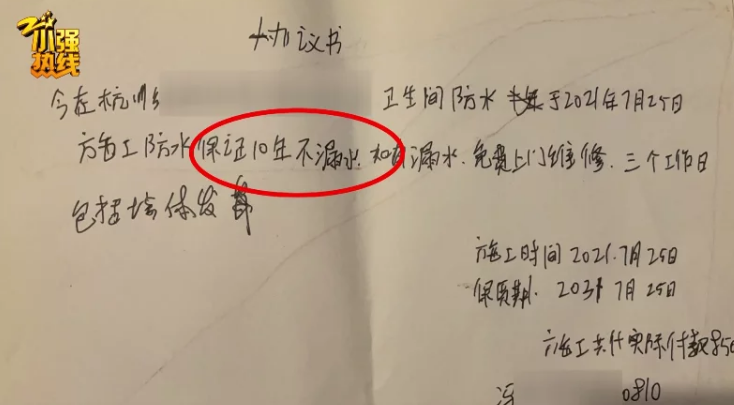 小强热线
协议书
今在杭州 卫生间防水 于2021年7月25日
施工防水保证10年不漏水.如有漏水.免费上门维修.三个工作日
包括墙体发
施工时间2021.7月25日
保质期.2031 7月25日
施工共计实际付款850
0810